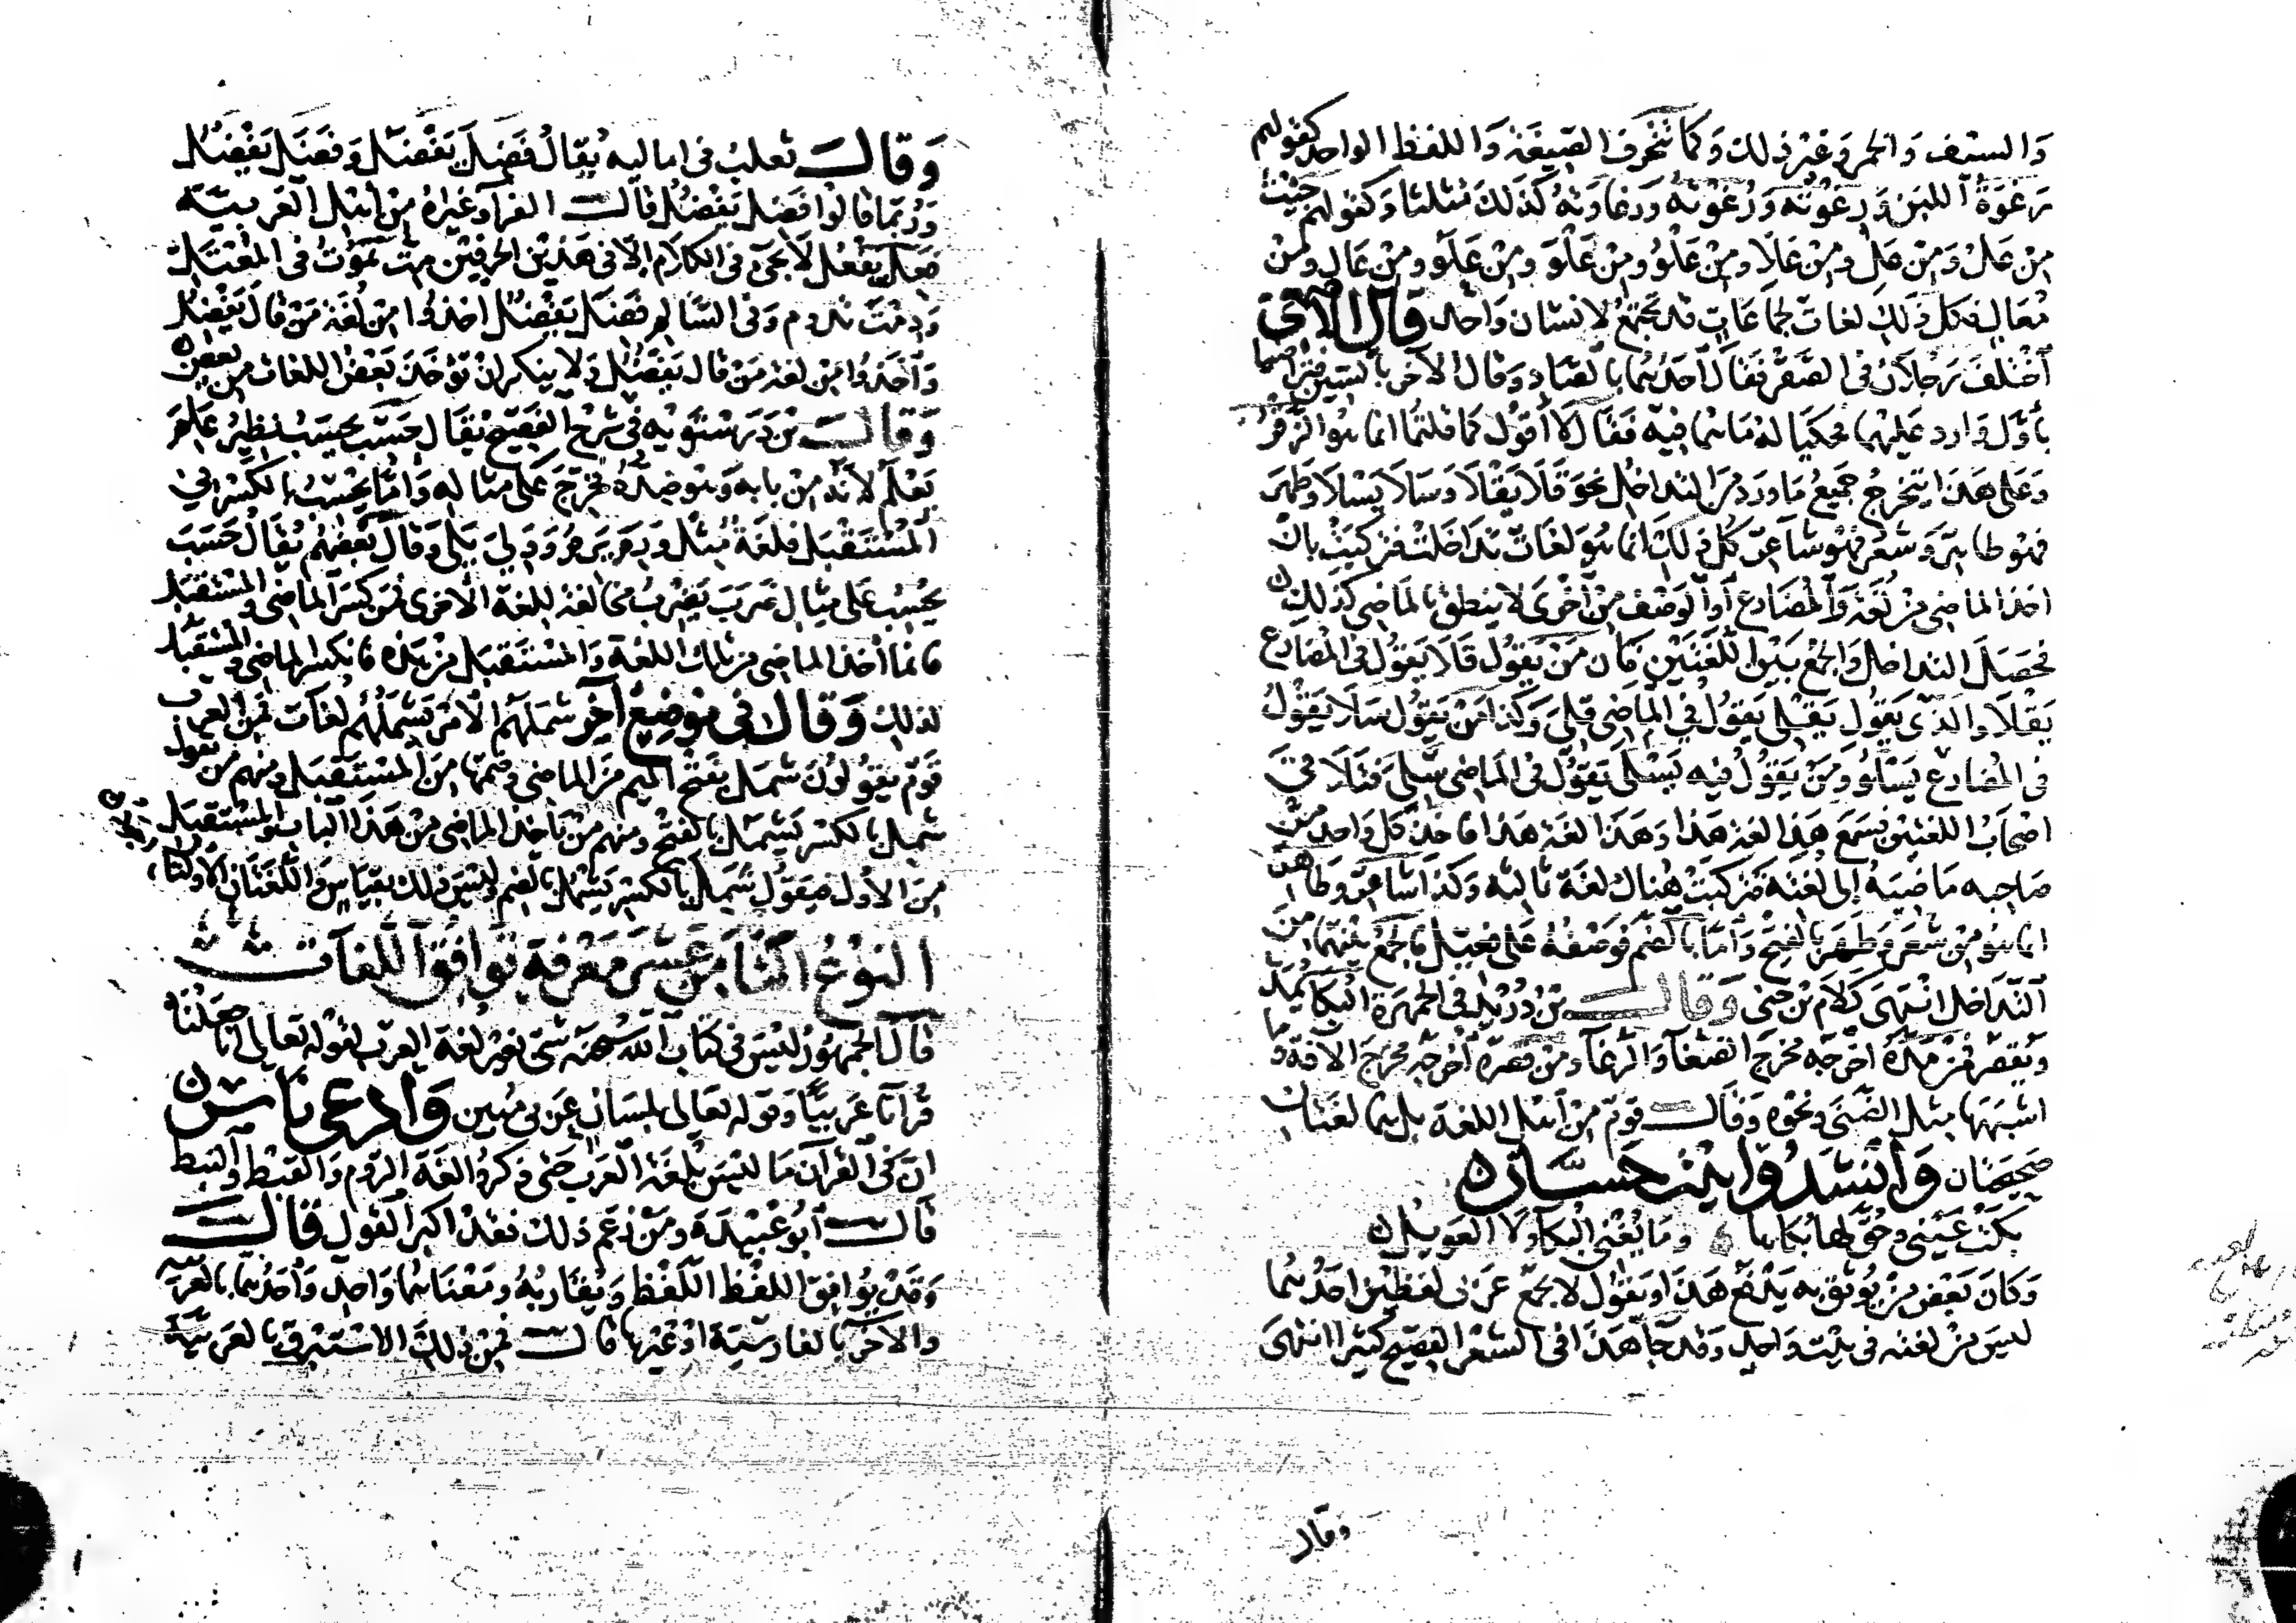 والسيف والخمر وغير ذلك وكما تنحرف الصيغة واللفظ الواحد كقولهم
رغوة اللبن ورغوته ورغوته ورغاوته كذلك مثلثا وكقولهم جيت
من عل ومن عل ومن علا ومن علو ومن علو ومن علو ومن عال ومن
معال فكل ذلك لغات لجماعات قد تجتمع لانسان واحد قال الاصمعي
اختلف رجلان في الصقر فقال احدهما بالصاد وقال الاخر بالسين فتراضيا
باول وارد عليهما فحكيا له ما هما فيه فقال لا اقول كما قلتما انما هو الزقر
وعلى هذا يتخرج جميع ما ورد من التداخل نحو قلا يقلا وسلا يسلا وطهر
فهو طاهر وشعر فهو شاعر كل ذلك انما هو لغات تداخلت فتركبت بان
اخذ الماضي من لغة والمضارع او الوصف من اخرى لا ينطق بالماضي كذلك
فحصل التداخل والجمع بين اللغتين فان من يقول قلا يقول في المضارع
يقلا والذي يقول يقلى يقول في الماضي قلى وكذا من يقول سلا يقول
في المضارع يسلو ومن يقول فيه يسلى يقول في الماضي سلي فتلاقى
اصحاب اللغتين فسمع هذا لغة هذا وهذا لغة هذا فاخذ كل واحد من
صاحبه ما ضمه الى لغته فتركبت هناك لغة ثالثة وكذا شاعر وطاهر
انما هو من شعر وطهر بالفتح واما بالضم فوصفه على فعيل فالجمع بينهما من
التداخل انتهى كلام بن جني وقال بن دريد في الجمهرة البكا يمد
ويقصر فمن مده اخرجه مخرج الضغا والرغا ومن قصره اخرجه مخرج الافة وما
اشبهها مثل الضنى ونحوه وقال قوم من اهل اللغة بل هما لغتان
صحيحتان وانشدوا بيت حسان
بكت عيني وحق لها بكاها وما يغني البكا ولا العويل
وكان بعض من يوثق به يدفع هذا ويقول لا يجمع عربي لفظين احدهما
ليس من لغته في بيت واحد وقد جا هذا في الشعر الفصيح كثيرا انتهى
وقال
وقال ثعلب في اماليه يقال فضل يفضل وفضل يفضل
وربما قالوا فضل يفضل قال الفرا وغيره من اهل العربية
فعل يفعل لا يجئ في الكلام الا في هذين الحرفين مت تموت في المعتل
ودمت تدوم وفي السالم فضل يفضل اخذوا من لغة من قال يفضل
واخذوا من لغة من قال يفضل ولا ينكر ان توخذ بعض اللغات من بعض
وقال بن درستويه في شرح الفصيح يقال حسب يحسب نظير علم
يعلم لانه من بابه وهو ضده فخرج على مثاله واما يحسب بالكسر في
المستقبل فلغة مثل ورم يرم وولي يلي وقال بعضهم يقال حسب
يحسب على مثال ضرب يضرب مخالفة للغة الاخرى فمن كسر الماضي والمستقبل
فانما اخذ الماضي من تلك اللغة والمستقبل من هذه فانكسر الماضي والمستقبل
لذلك وقال في موضع آخر شملهم الامر يشملهم لغات فمن العرب
قوم يقولون شمل بفتح الميم من الماضي وضمها من المستقبل ومنهم من يقول
شمل بالكسر يشمل بالفتح ومنهم من ياخذ الماضي من هذا الباب والمستقبل
من الاول فيقول شمل بالكسر يشمل بالضم وليس ذلك بقياس واللغتان الاولتان
النوع السادس عشر معرفة توافق اللغات
قال الجمهور ليس في كتاب الله سبحنه شي بغير لغة العرب لقوله تعالى انا جعلناه
قرآنا عربيا وقوله تعالى بلسان عربي مبين وادعى ناس
ان في القرآن ما ليس بلغة العرب حتى ذكروا لغة الروم والقبط والنبط
قال ابو عبيدة ومن زعم ذلك فقد اكبر القول قال
وقد يوافق اللفظ اللفظ ويقاربه ومعناهما واحد واحدهما بالعربية
والآخر بالفارسية او غيرها قال فمن ذلك الاستبرق بالعربية